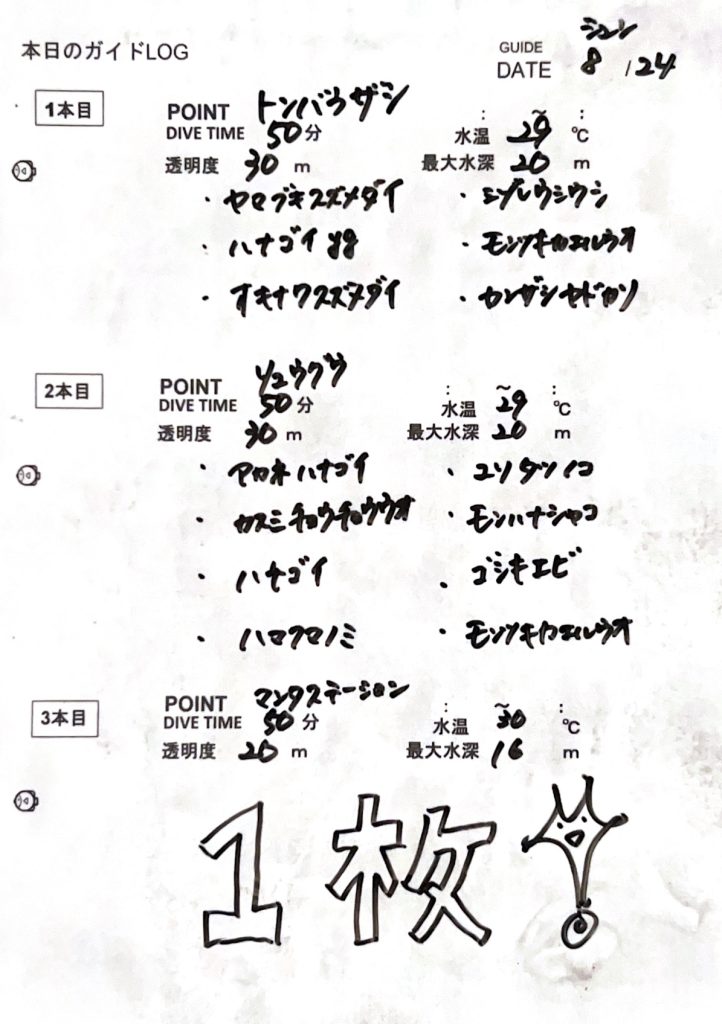 本日のガイドLOG
GUIDE ジュン
DATE 8 /24
1本目
POINT トンバラザシ
DIVE TIME 50分
: ~ :
水温 29 ℃
透明度 30 m
最大水深 20 m
・ヤマブキスズメダイ
・ミゾレウミウシ
・ハナゴイyg
・モンツキカエルウオ
・オキナワスズメダイ
・カンザシヤドカリ
2本目
POINT リュウグウ
DIVE TIME 50分
: ~ :
水温 29 ℃
透明度 30 m
最大水深 20 m
・アカネハナゴイ
・カスミチョウチョウウオ
・モンハナシャコ
・ハナゴイ
・ゴシキエビ
・ハマクマノミ
・モンツキカエルウオ
3本目
POINT マンタステーション
DIVE TIME 50分
: ~ :
水温 30 ℃
透明度 20 m
最大水深 16 m
1枚!